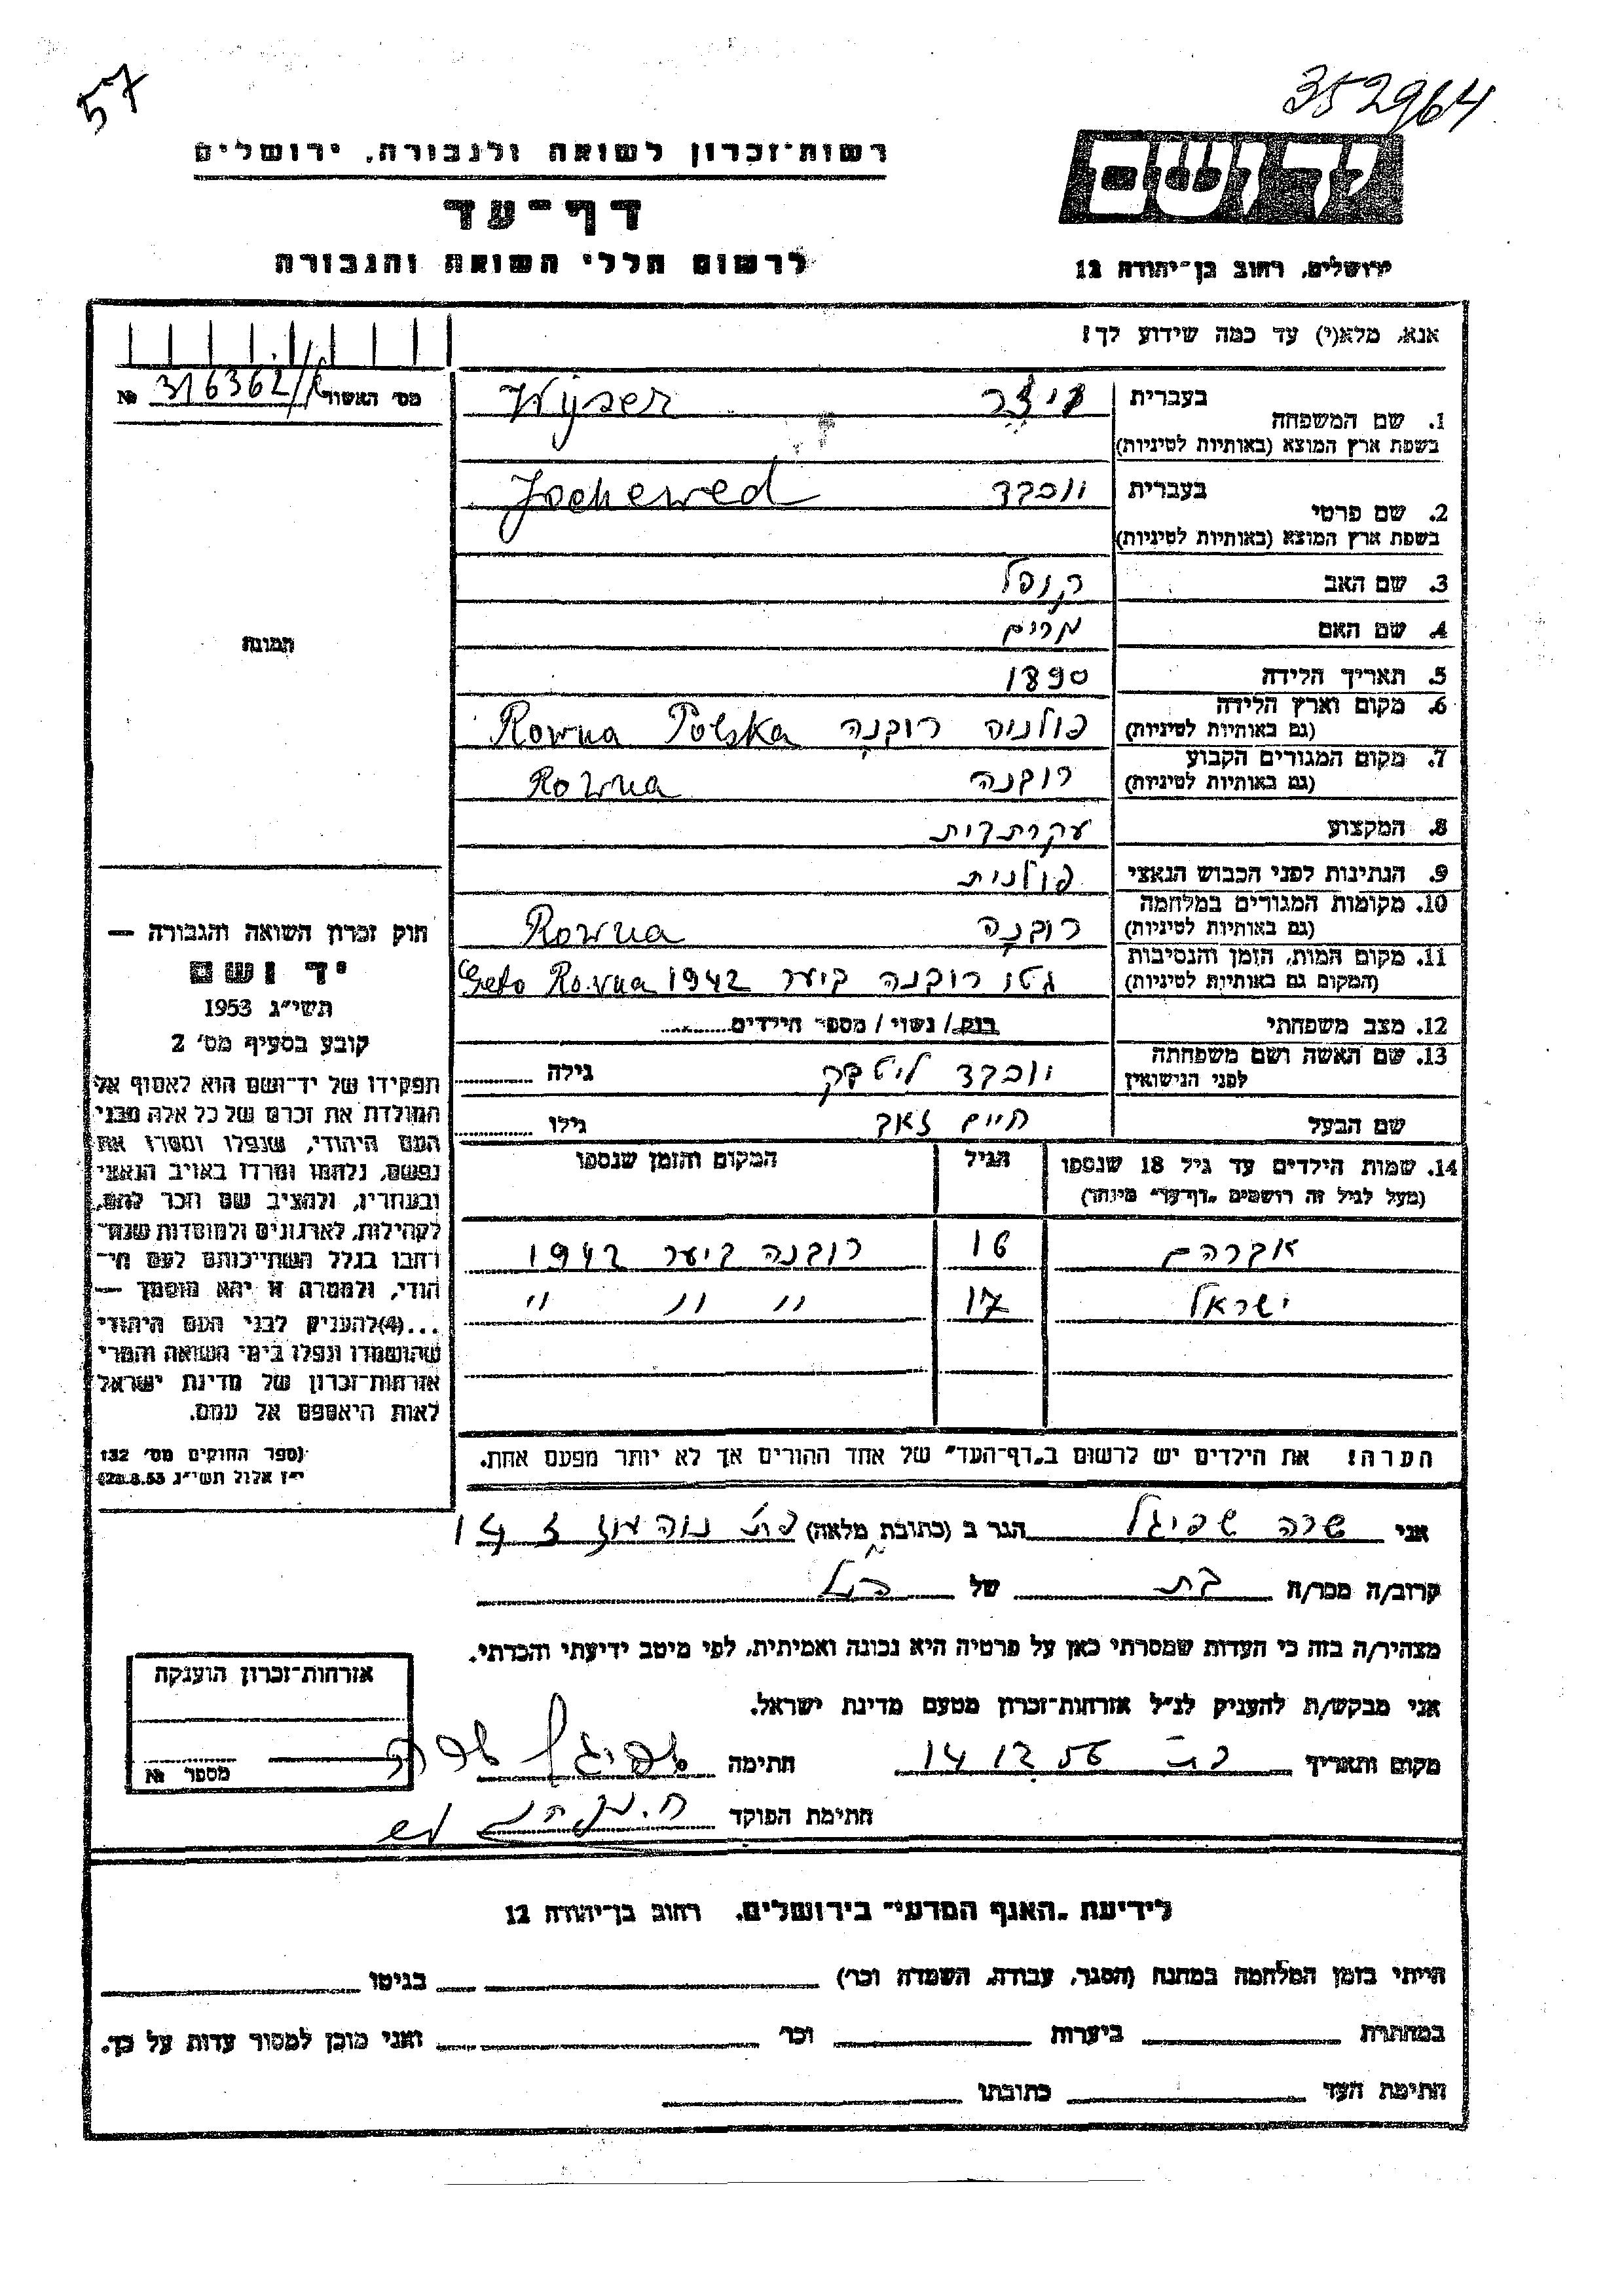 57
352964
רשות-זכרון לשואה ולגבורה, ירושלים
יד ושם
דף-עד
לרשום חללי השואה והגבורה
ירושלים, רחוב בן-יהודה 12
אנא, מלא(י) עד כמה שידוע לך!
מס' האשור № 316362/
1. שם המשפחה
בעברית
Wyser
בשפת ארץ המוצא (באותיות לטיניות)
2. שם פרטי
בעברית יוכבד
Jochewed
בשפת ארץ המוצא (באותיות לטיניות)
3. שם האב
תמונה
4. שם האם מרים
5. תאריך הלידה 1890
6. מקום וארץ הלידה פולניה רובנה Rowna Polska
(גם באותיות לטיניות)
7. מקום המגורים הקבוע רובנה Rowna
(גם באותיות לטיניות)
8. המקצוע עקרת בית
9. הנתינות לפני הכבוש הנאצי פולנית
10. מקומות המגורים במלחמה רובנה Rowna
(גם באותיות לטיניות)
11. מקום המות, הזמן והנסיבות גטו רובנה ביער 1942 Geto Rowna
(המקום גם באותיות לטיניות)
12. מצב משפחתי רווק / נשוי / מספר הילדים
13. שם האשה ושם משפחתה יוכבד גילה
לפני הנישואין
שם הבעל חיים זאב גילו
14. שמות הילדים עד גיל 18 שנספו הגיל המקום והזמן שנספו
(מעל לגיל זה רושמים „דף-עד" מיוחד)
אברהם 16 רובנה ביער 1942
ישראל 17 " " "
הערה! את הילדים יש לרשום ב„דף-העד" של אחד ההורים אך לא יותר מפעם אחת.
חוק זכרון השואה והגבורה —
יד ושם
תשי"ג 1953
קובע בסעיף מס' 2
תפקידו של יד-ושם הוא לאסוף אל
המולדת את זכרם של כל אלה מבני
העם היהודי, שנפלו ומסרו את
נפשם, נלחמו ומרדו באויב הנאצי
ובעוזריו, ולהציב שם וזכר להם,
לקהילות, לארגונים ולמוסדות שנח-
רבו בגלל השתייכותם לעם הי-
הודי, ולמטרה זו יהא מוסמך —
...(4)להעניק לבני העם היהודי
שהושמדו ונפלו בימי השואה והמרי
אזרחות-זכרון של מדינת ישראל
לאות היאספם אל עמם.
(ספר החוקים מס' 132
י"ז אלול תשי"ג 28.8.53)
אני שרה שפיגל הגר ב (כתובת מלאה)
קרוב/ה מכר/ה בת של
מצהיר/ה בזה כי העדות שמסרתי כאן על פרטיה היא נכונה ואמיתית, לפי מיטב ידיעתי והכרתי.
אני מבקש/ת להעניק לנ"ל אזרחות-זכרון מטעם מדינת ישראל.
מקום ותאריך 14 12 56 חתימה שפיגל שרה
חתימת הפוקד
אזרחות-זכרון הוענקה
מספר №
לידיעת „האגף המדעי" בירושלים, רחוב בן-יהודה 12
הייתי בזמן המלחמה במחנה (הסגר, עבודה, השמדה וכו') בגיטו
במחתרת ביערות וכו' ואני מוכן למסור עדות על כך.
חתימת העד כתובתו